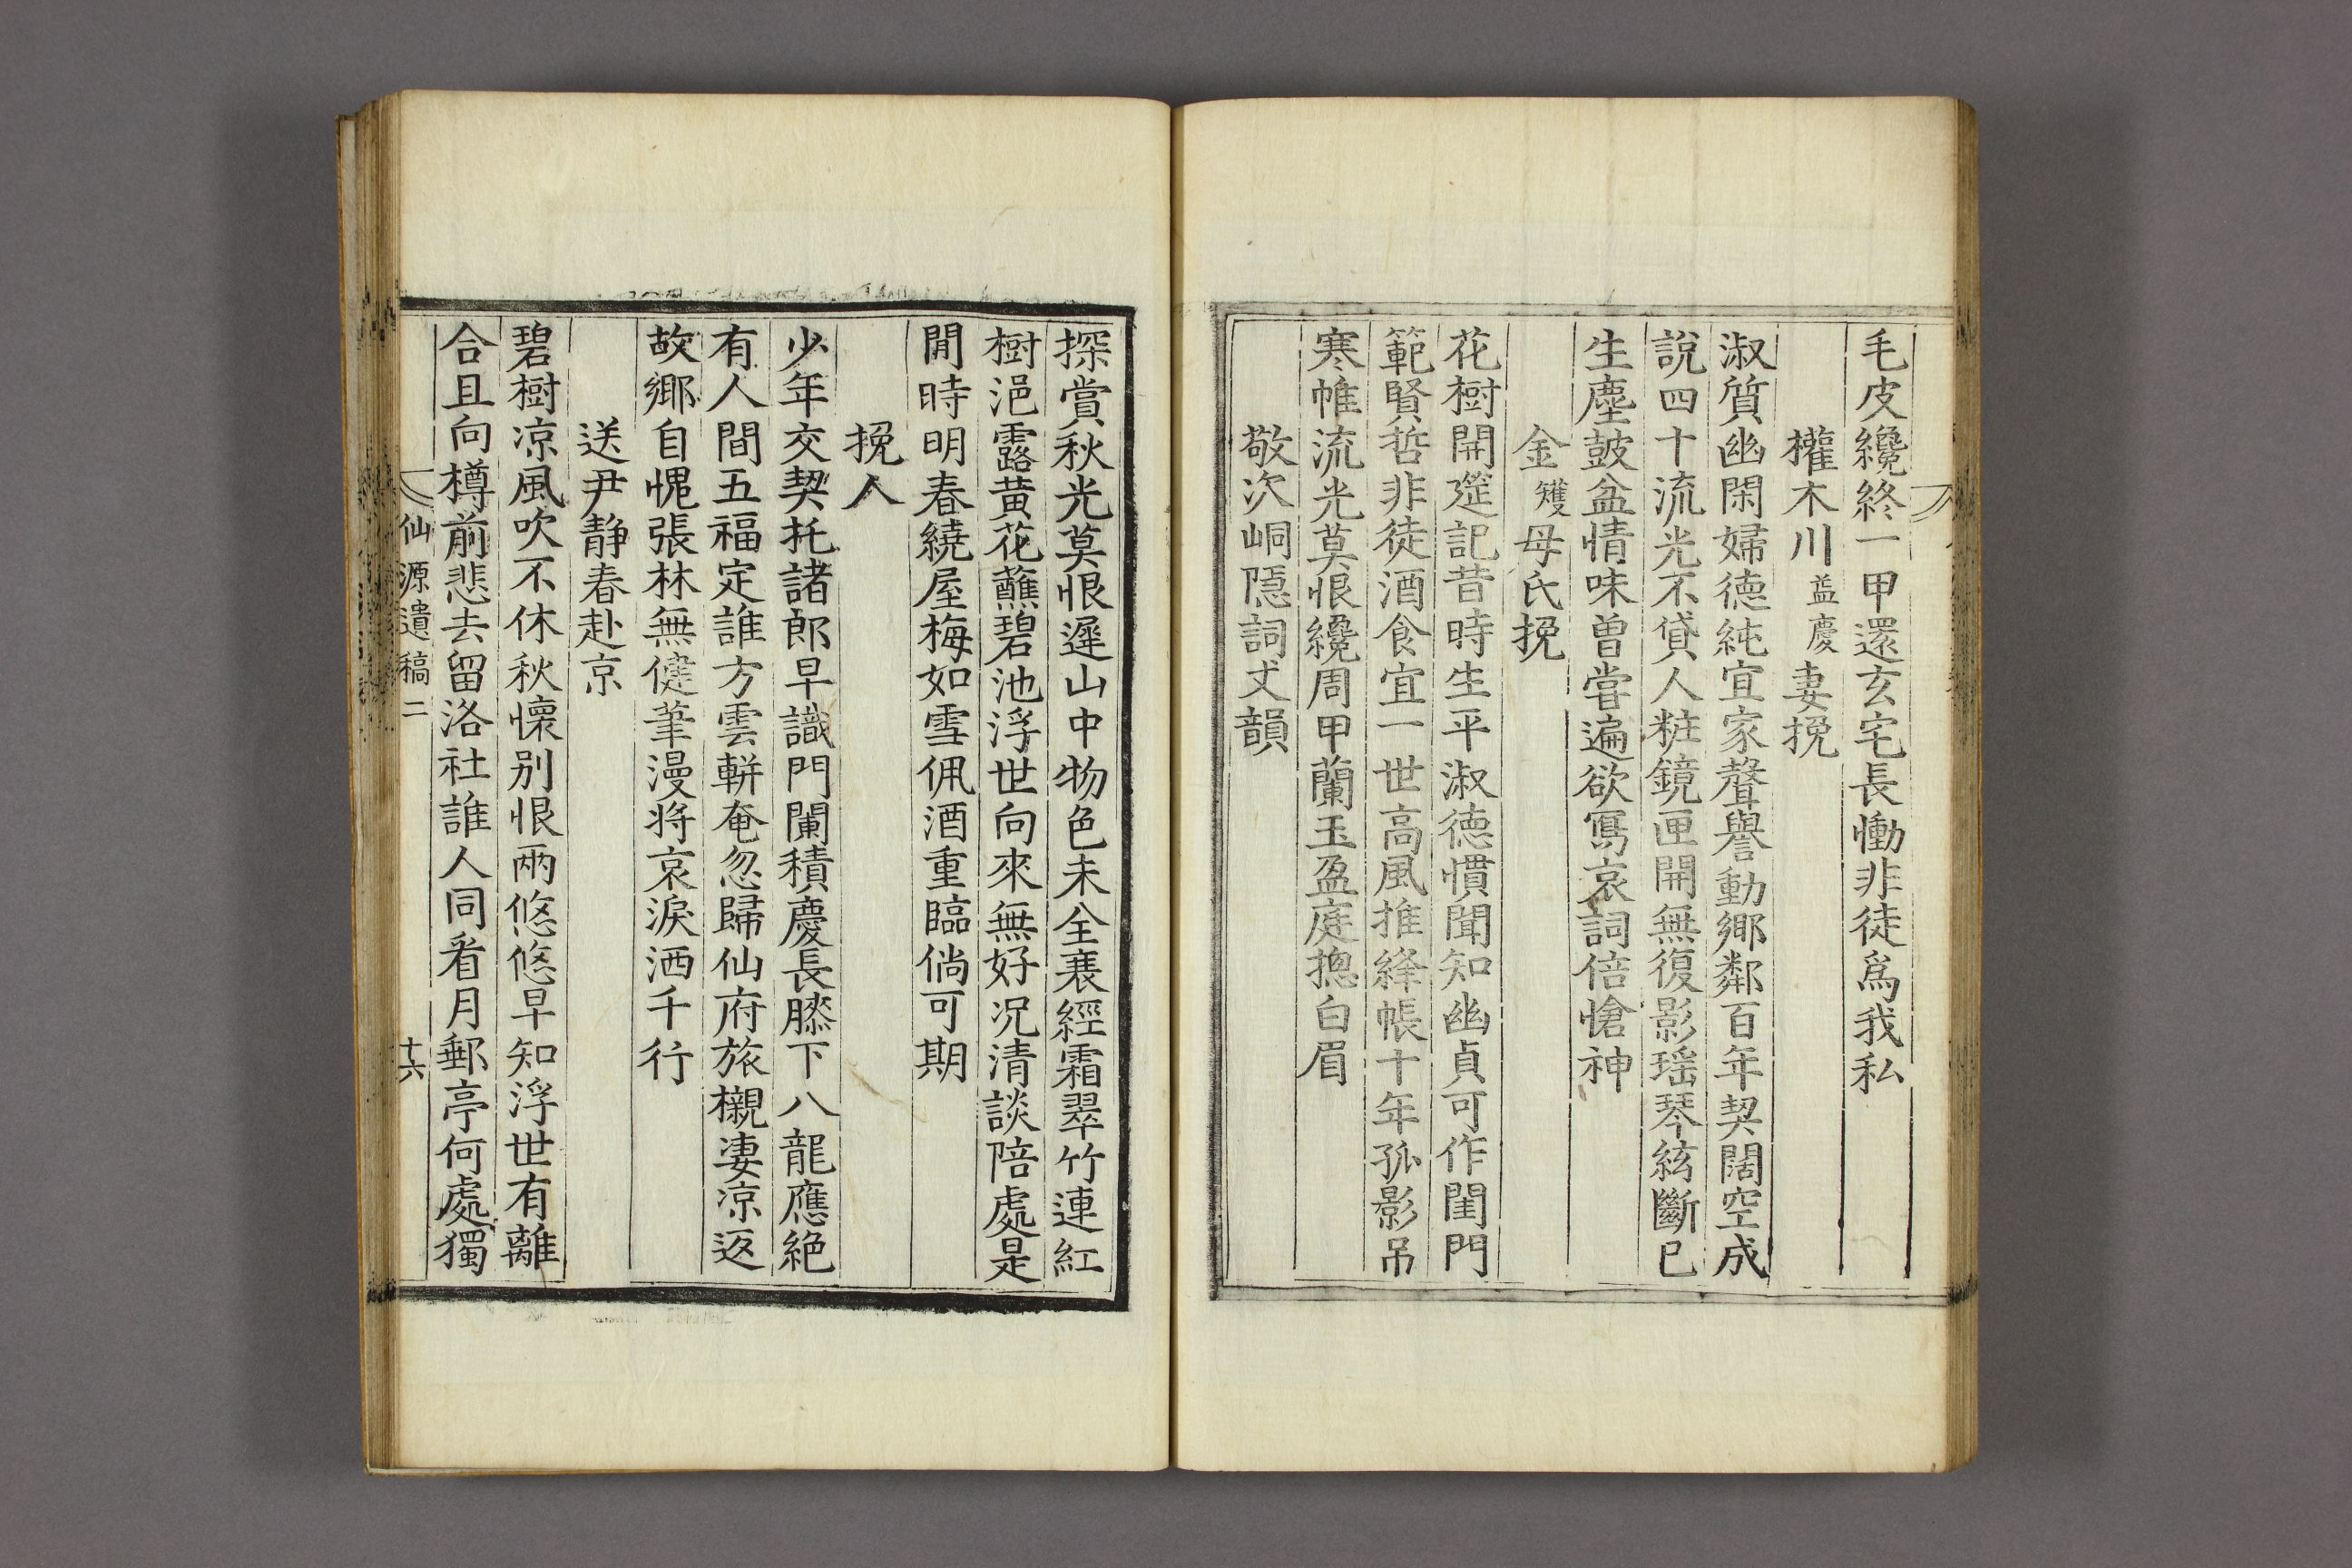 毛皮纔終一甲還玄宅長慟非徒爲我私
權木川益慶妻挽
淑質幽閑婦德純宜家聲譽動鄉鄰百年契闊空成
說四十流光不貸人粧鏡匣開無復影瑶琴絃斷已
生塵鼓盆情味曾嘗遍欲寫哀詞倍愴神
金矱母氏挽
花樹開筵記昔時生平淑德慣聞知幽貞可作閨門
範賢哲非徒酒食宜一世高風推絳帳十年孤影吊
寒帷流光莫恨纔周甲蘭玉盈庭摠白眉
敬次峒隱詞丈韻
探賞秋光莫恨遲山中物色未全衰經霜翠竹連紅
樹浥露黄花蘸碧池浮世向來無好況清談陪處是
閒時明春繞屋梅如雪佩酒重臨倘可期
挽人
少年交契托諸郎早識門闌積慶長膝下八龍應絶
有人間五福定誰方雲輧奄忽歸仙府旅櫬凄凉返
故鄉自愧張林無健筆漫將哀淚洒千行
送尹静春赴京
碧樹凉風吹不休秋懷别恨兩悠悠早知浮世有離
合且向樽前悲去留洛社誰人同看月郵亭何處獨
仙源遺稿二
十六